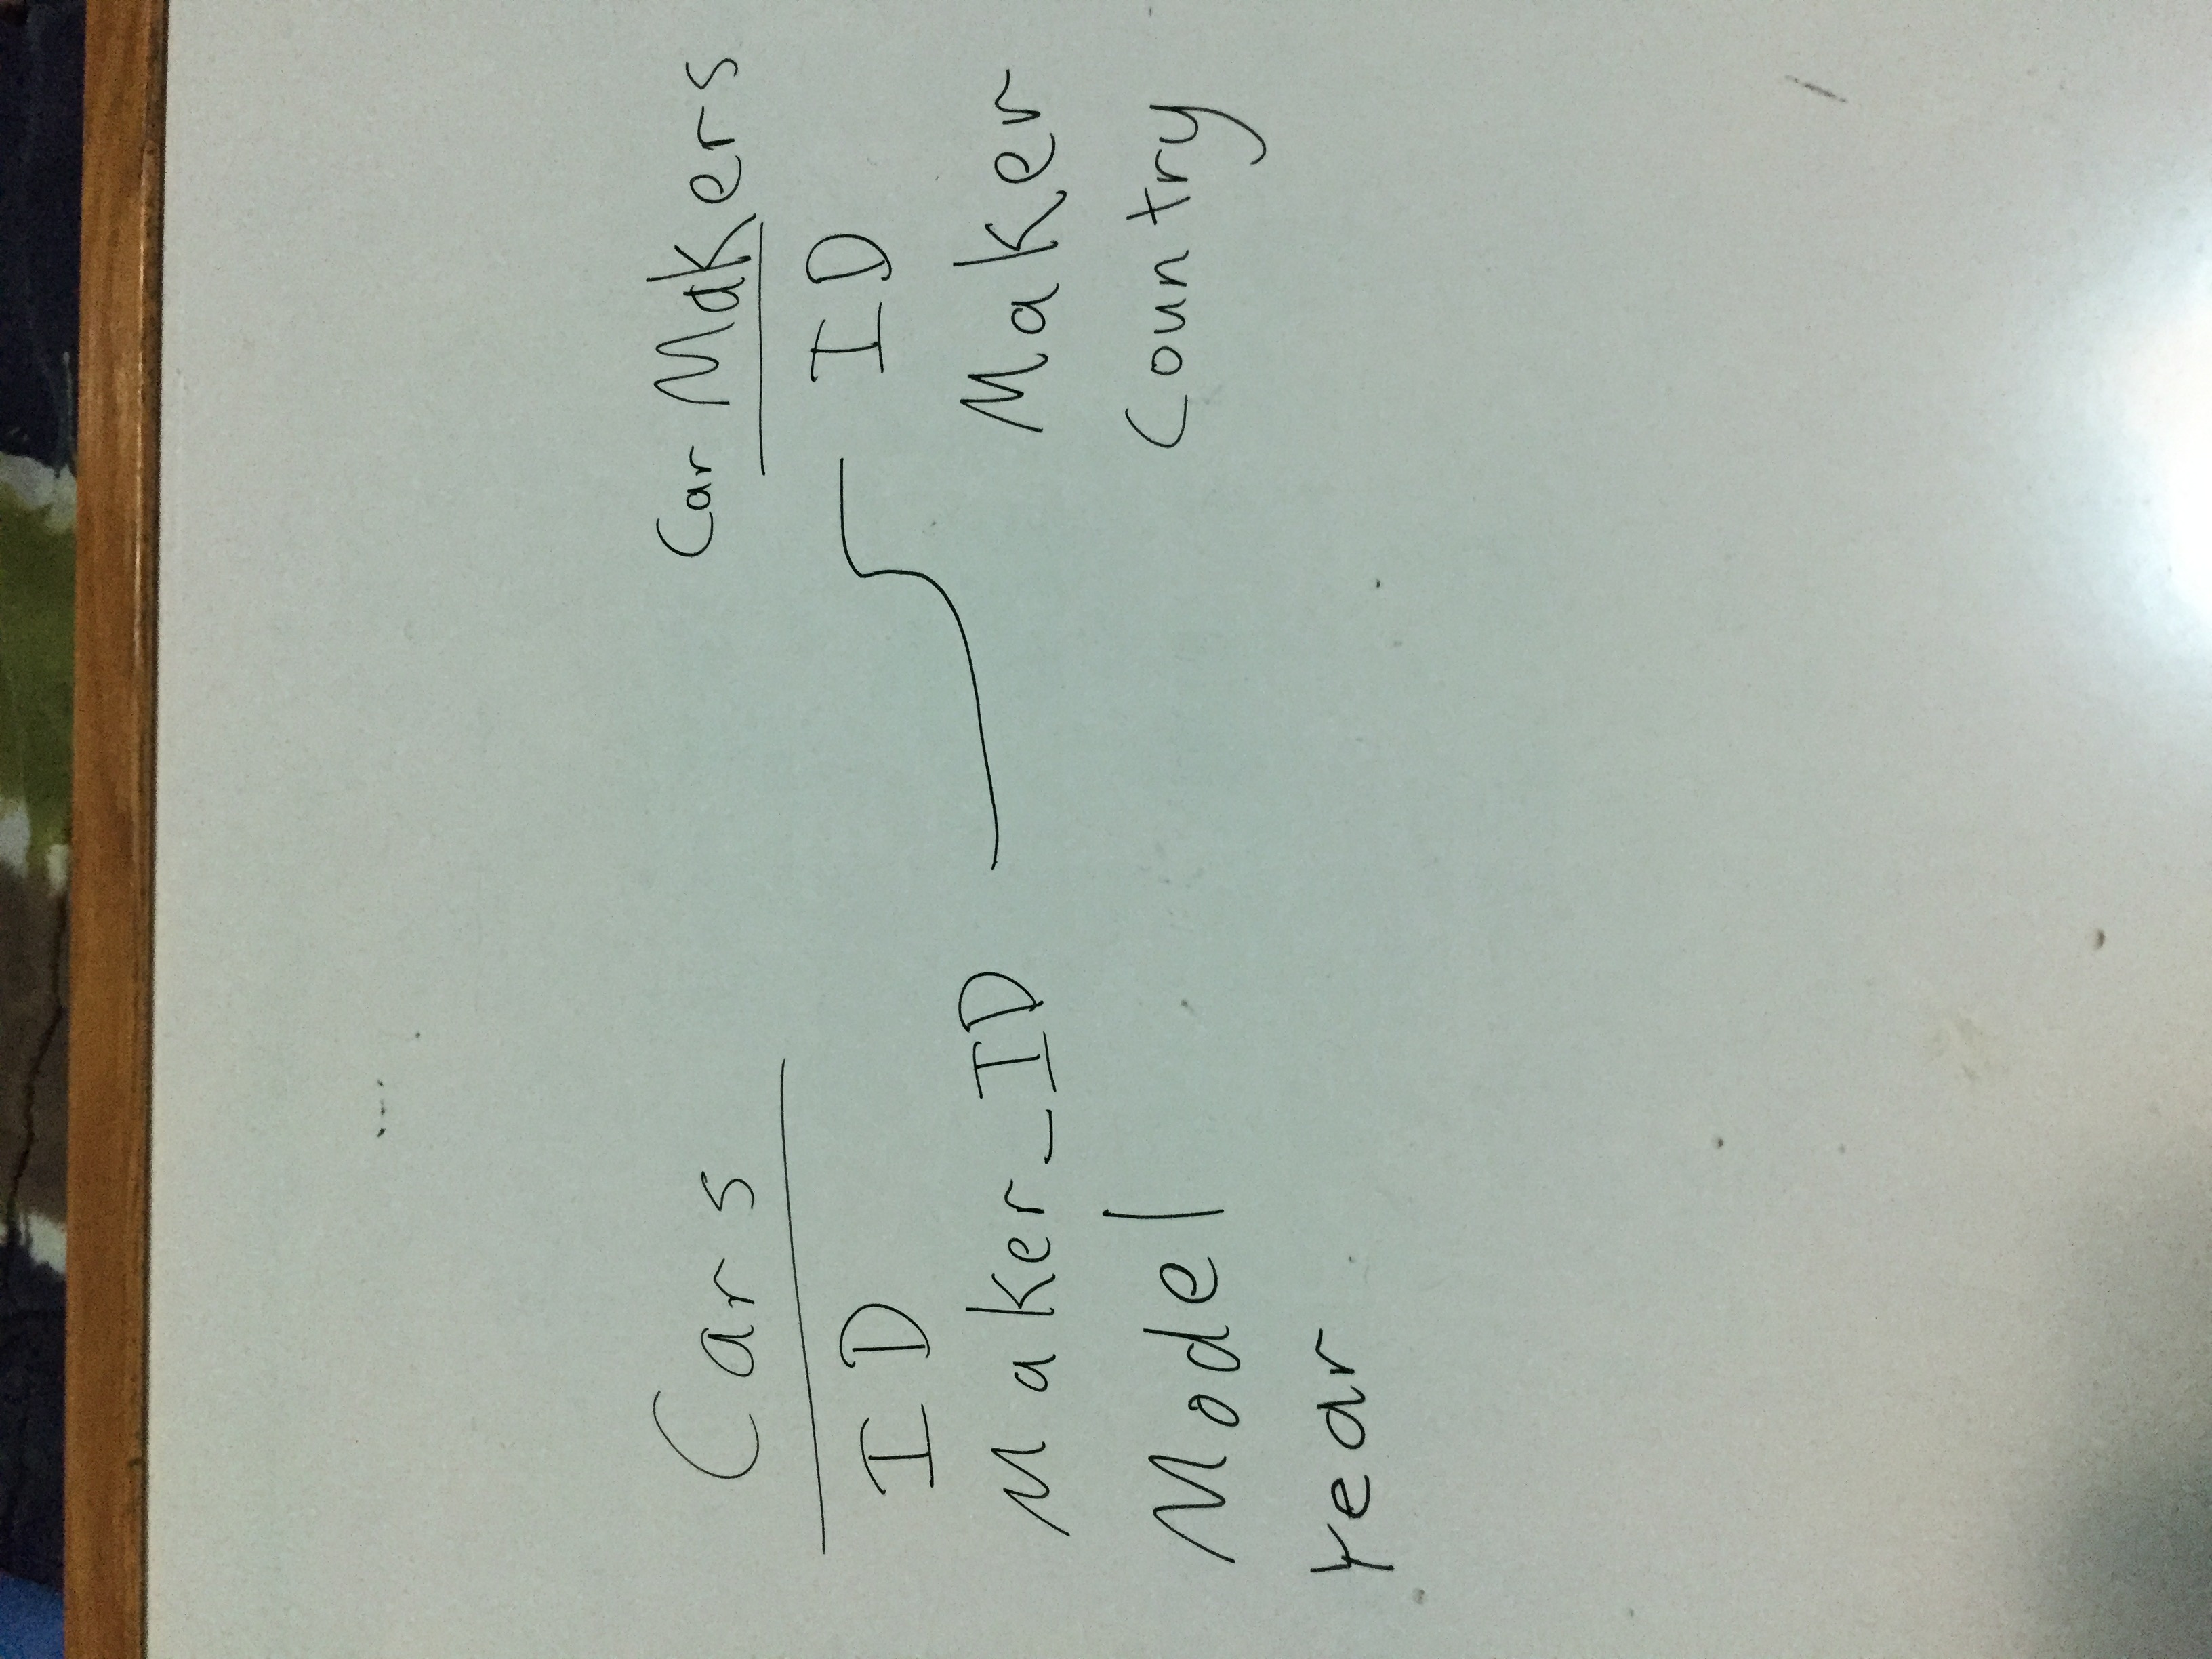 Cars
ID
Maker_ID
Model
Year
Car Makers
ID
Maker
Country